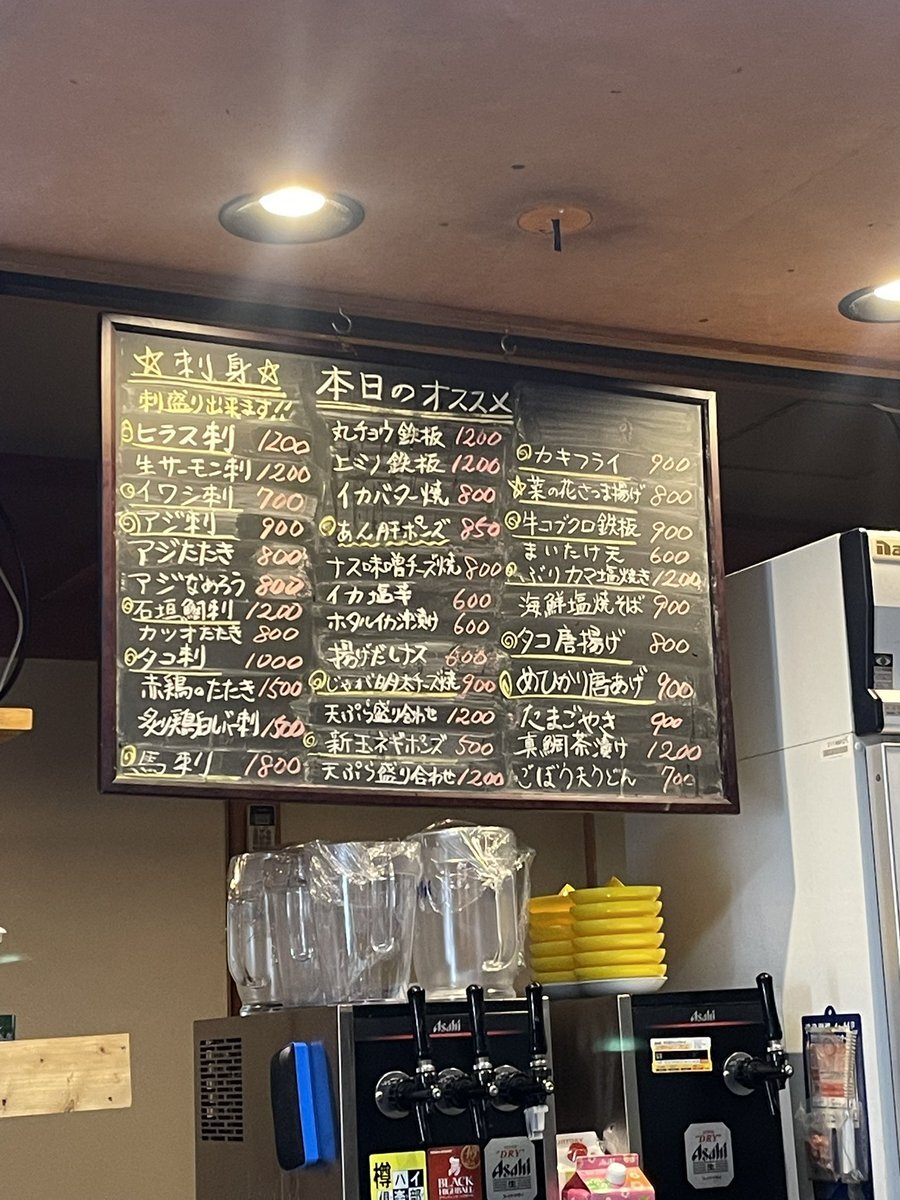 ☆刺身☆
刺盛り出来ます!!
ヒラス刺 1200
生サーモン刺 1200
イワシ刺 700
アジ刺 900
アジたたき 800
アジなめろう 800
石垣鯛刺 1200
カツオたたき 800
タコ刺 1000
赤鶏のたたき 1500
炙り鶏白レバー刺 1500
馬刺 1800
本日のオススメ
丸チョウ鉄板 1200
上ミノ鉄板 1200
イカバター焼 800
あん肝ポンズ 850
ナス味噌チーズ焼 800
イカ塩辛 600
ホタルイカ沖漬け 600
揚げだしナス 600
じゃが明太チーズ焼 900
天ぷら盛り合わせ 1200
新玉ネギポンズ 500
天ぷら盛り合わせ 1200
カキフライ 900
☆菜の花さつま揚げ 800
牛コブクロ鉄板 900
まいたけ天 600
ぶりカマ塩焼き 1200
海鮮塩焼そば 900
タコ唐揚げ 800
めひかり唐あげ 900
たまごやき 900
真鯛茶漬け 1200
ごぼう天うどん 700
Asahi
Asahi
樽ハイ
倶楽部
BLACK
HIGHBALL
"DRY"
Asahi
生
"DRY"
Asahi
生